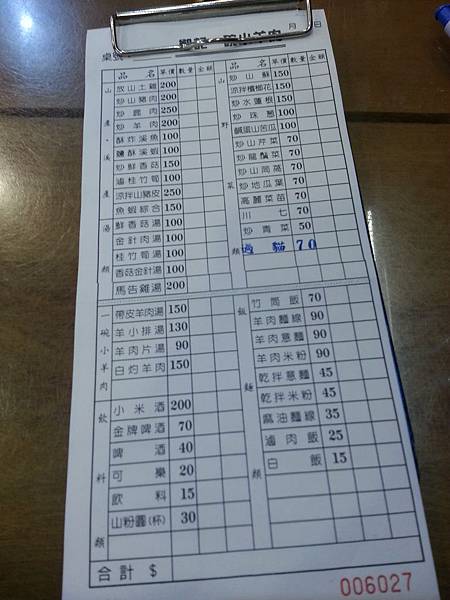 桌號
月 日
品名 單價 數量 金額
山產・溪產
放山土雞 200
炒山豬肉 200
炒鹿肉 250
炒羊肉 200
酥炸溪魚 100
鹽酥溪蝦 100
炒鮮香菇 150
滷桂竹筍 100
涼拌山豬皮 250
魚蝦綜合 150
湯類
鮮香菇湯 100
金針肉湯 100
桂竹筍湯 100
香菇金針湯 100
馬告雞湯 200
品名 單價 數量 金額
山野菜類
炒山蘇 150
涼拌檳榔花 150
炒水蓮根 150
炒珠蔥 100
鹹蛋山苦瓜 100
炒山芹菜 70
炒龍鬚菜 70
炒山茼蒿 70
炒地瓜葉 70
高麗菜苗 70
川七 70
炒青菜 50
過貓 70
一碗小羊肉
帶皮羊肉湯 150
羊小排湯 130
羊肉片湯 90
白灼羊肉 150
飲料類
小米酒 200
金牌啤酒 70
啤酒 40
可樂 20
飲料 15
山粉圓(杯) 30
飯麵類
竹筒飯 70
羊肉麵線 90
羊肉意麵 90
羊肉米粉 90
乾拌意麵 45
乾拌米粉 45
麻油麵線 35
滷肉飯 25
白飯 15
合計 $
006027